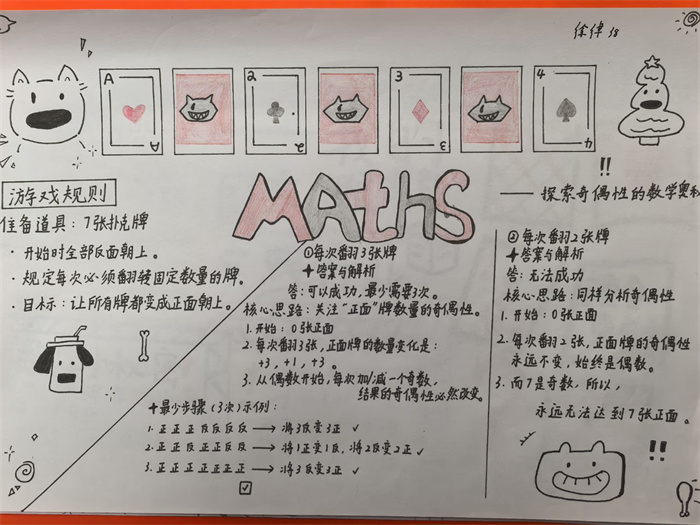 徐律 18
A
A
2
2
3
3
4
4
MAthS
!!
—— 探索奇偶性的数学奥秘
游戏规则
准备道具：7张扑克牌
· 开始时全部反面朝上。
· 规定每次必须翻转固定数量的牌。
· 目标：让所有牌都变成正面朝上。
①每次翻3张牌
+答案与解析
答：可以成功，最少需要3次。
核心思路：关注“正面”牌数量的奇偶性。
1.开始：0张正面
2.每次翻3张，正面牌的数量变化是：
+3，+1，+3。
3.从偶数开始，每次加/减一个奇数，
结果的奇偶性必然改变。
+最少步骤（3次）示例：
1.正正正反反反反 → 将3反变3正 ✓
2.正正反正正反反 → 将1正变1反，将2反变2正 ✓
3.正正正正正正正 → 将3反变3正 ✓
②每次翻2张牌
+答案与解析
答：无法成功
核心思路：同样分析奇偶性
1.开始：0张正面
2.每次翻2张，正面牌的奇偶性
永远不变，始终是偶数。
3.而7是奇数，所以，
永远无法达到7张正面。
!!